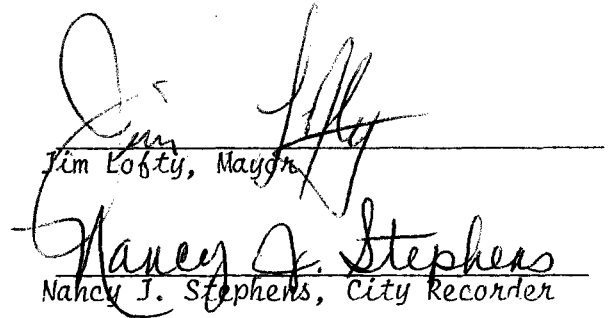 Jim Lofty
Jim Lofty, Mayor
Nancy J. Stephens
Nancy J. Stephens, City Recorder